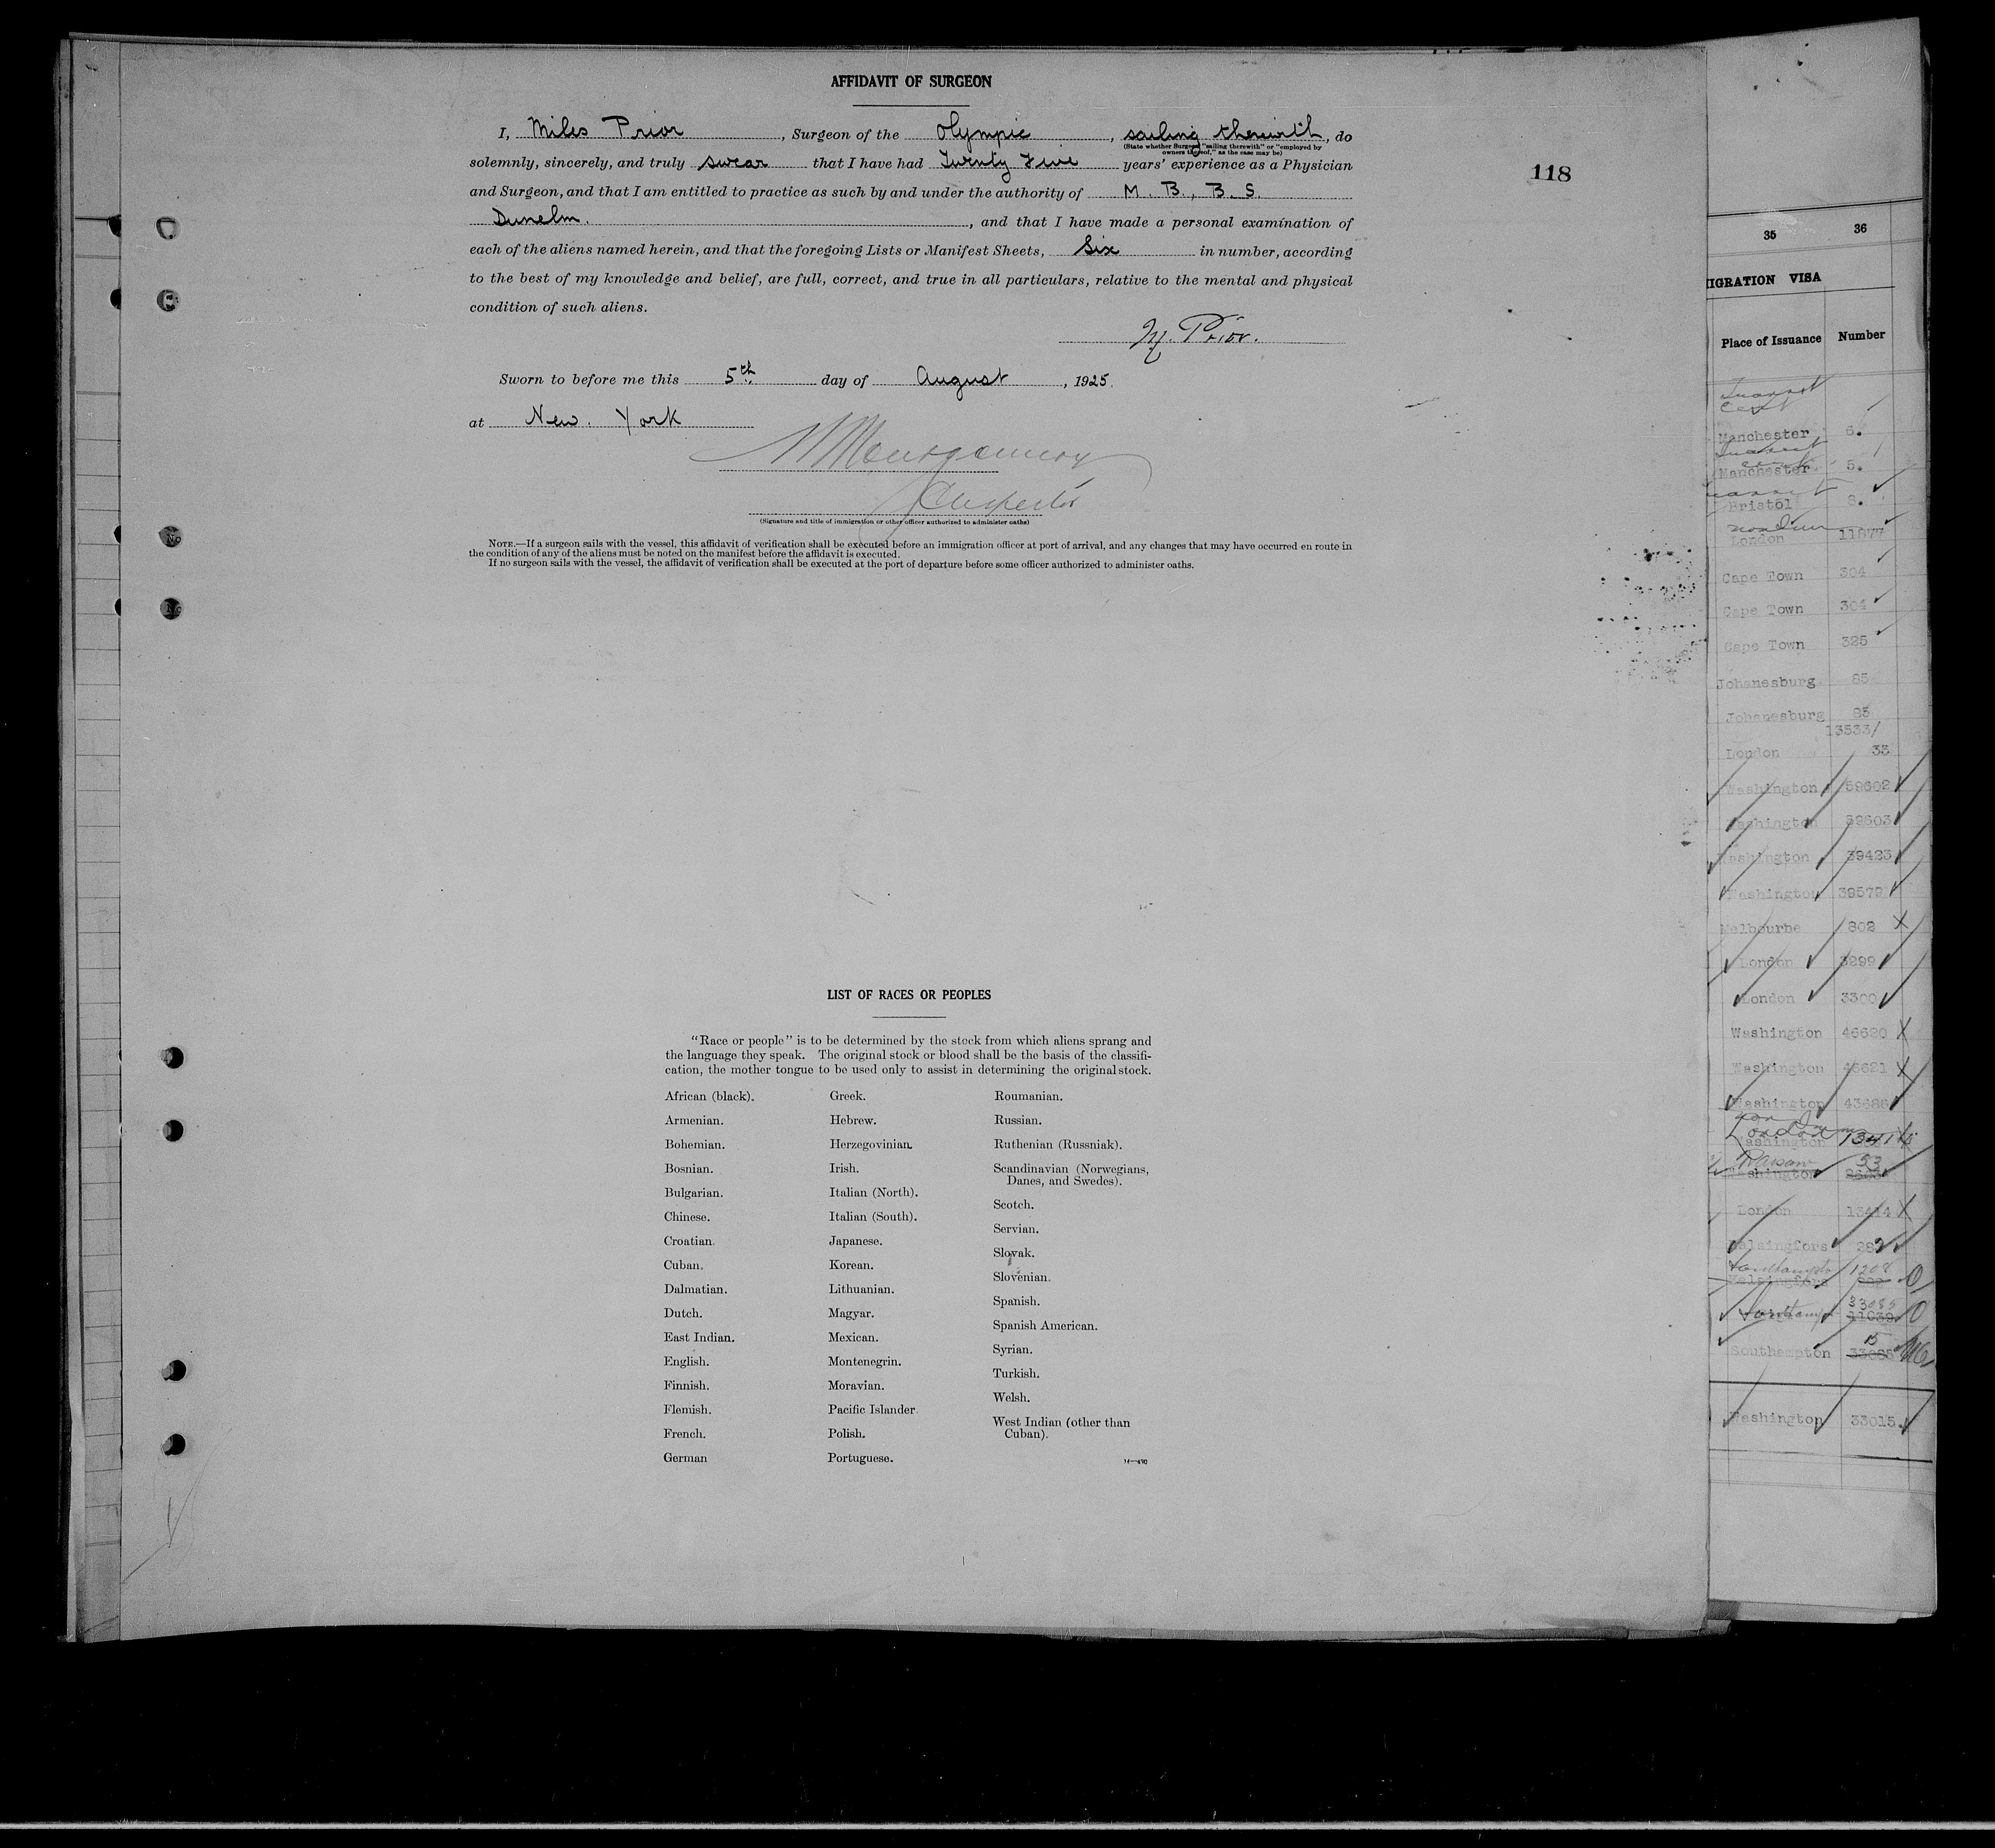 AFFIDAVIT OF SURGEON
I, Miles Prior, Surgeon of the Olympic, sailing therewith, do
(State whether Surgeon "sailing therewith" or "employed by
owners thereof," as the case may be)
solemnly, sincerely, and truly swear that I have had Twenty Five years' experience as a Physician
and Surgeon, and that I am entitled to practice as such by and under the authority of M. B., B. S.
Dunelm., and that I have made a personal examination of
each of the aliens named herein, and that the foregoing Lists or Manifest Sheets, Six in number, according
to the best of my knowledge and belief, are full, correct, and true in all particulars, relative to the mental and physical
condition of such aliens.
M. Prior.
Sworn to before me this 5th day of August, 1925.
at New. York
Montgomery
Inspector
(Signature and title of immigration or other officer authorized to administer oaths)
NOTE.—If a surgeon sails with the vessel, this affidavit of verification shall be executed before an immigration officer at port of arrival, and any changes that may have occurred en route in
the condition of any of the aliens must be noted on the manifest before the affidavit is executed.
If no surgeon sails with the vessel, the affidavit of verification shall be executed at the port of departure before some officer authorized to administer oaths.
118
LIST OF RACES OR PEOPLES
"Race or people" is to be determined by the stock from which aliens sprang and
the language they speak. The original stock or blood shall be the basis of the classifi-
cation, the mother tongue to be used only to assist in determining the original stock.
African (black).
Armenian.
Bohemian.
Bosnian.
Bulgarian.
Chinese.
Croatian.
Cuban.
Dalmatian.
Dutch.
East Indian.
English.
Finnish.
Flemish.
French.
German
Greek.
Hebrew.
Herzegovinian.
Irish.
Italian (North).
Italian (South).
Japanese.
Korean.
Lithuanian.
Magyar.
Mexican.
Montenegrin.
Moravian.
Pacific Islander.
Polish.
Portuguese.
Roumanian.
Russian.
Ruthenian (Russniak).
Scandinavian (Norwegians,
Danes, and Swedes).
Scotch.
Servian.
Slovak.
Slovenian.
Spanish.
Spanish American.
Syrian.
Turkish.
Welsh.
West Indian (other than
Cuban).
35 36
IGRATION VISA
Place of Issuance Number
Transit
Cert
Manchester 6.
Manchester 5.
Bristol 8.
London 11877
Cape Town 304
Cape Town 304
Cape Town 325
Johanesburg 85
Johanesburg 83
13533/
London 33
Washington 59602
Washington 59603
Washington 39423
Washington 39579
Melbourne 802
London 3299
London 3300
Washington 46620
Washington 46621
Washington 43686
London
Washington
Washington 53
London 13414
Helsingfors 282
1208
Helsingfors
33085
11039
15
Southampton 33085
Washington 33015